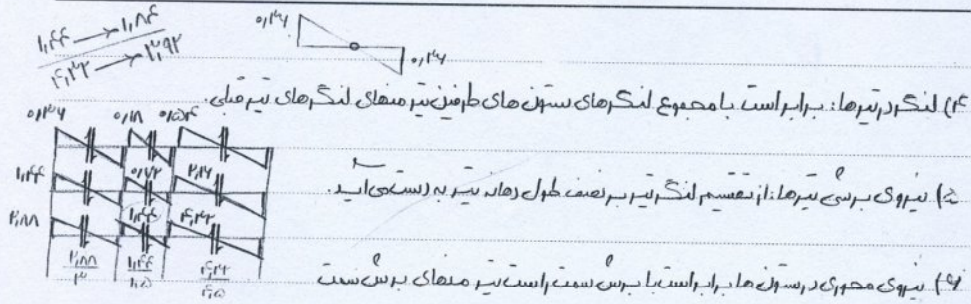 ۱,۴۴ → ۱,۸۴
۴,۳۲ → ۳,۹۲
۰,۳۶
۰,۳۶
۴) لنگر در تیرها: برابر است با مجموع لنگرهای ستون های طرفین تیر منهای لنگرهای تیر قبلی.
۰,۳۶ ۰,۱۸ ۰,۵۴
۱,۴۴ ۰,۷۲ ۲,۱۶
۵) نیروی برشی تیرها: از تقسیم لنگر تیر بر نصف طول دهانه تیر به دست می آید.
۲,۸۸ ۱,۴۴ ۴,۳۲
۲,۸۸/۳ ۱,۴۴/۱,۵ ۴,۳۲/۴,۵
۶) نیروی محوری در ستون ها برابر است با برش سمت راست تیر منهای برش سمت